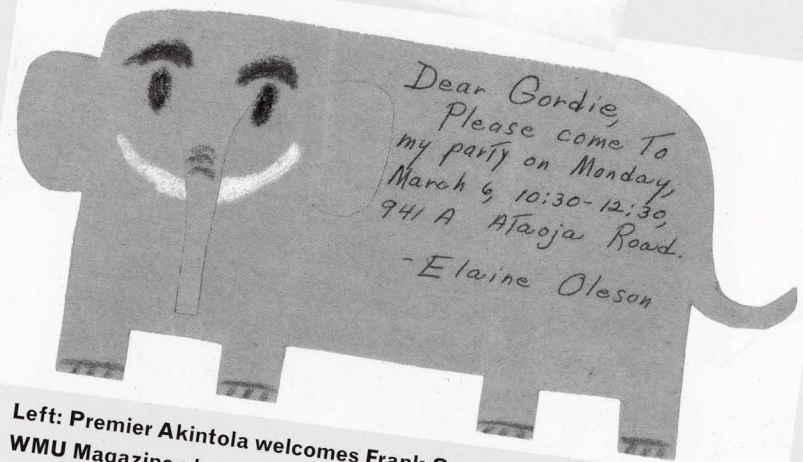 Dear Gordie,
Please come To
my party on Monday,
March 6, 10:30-12:30,
941 A ATaoja Road.
-Elaine Oleson
Left: Premier Akintola welcomes Frank
WMU Magazine